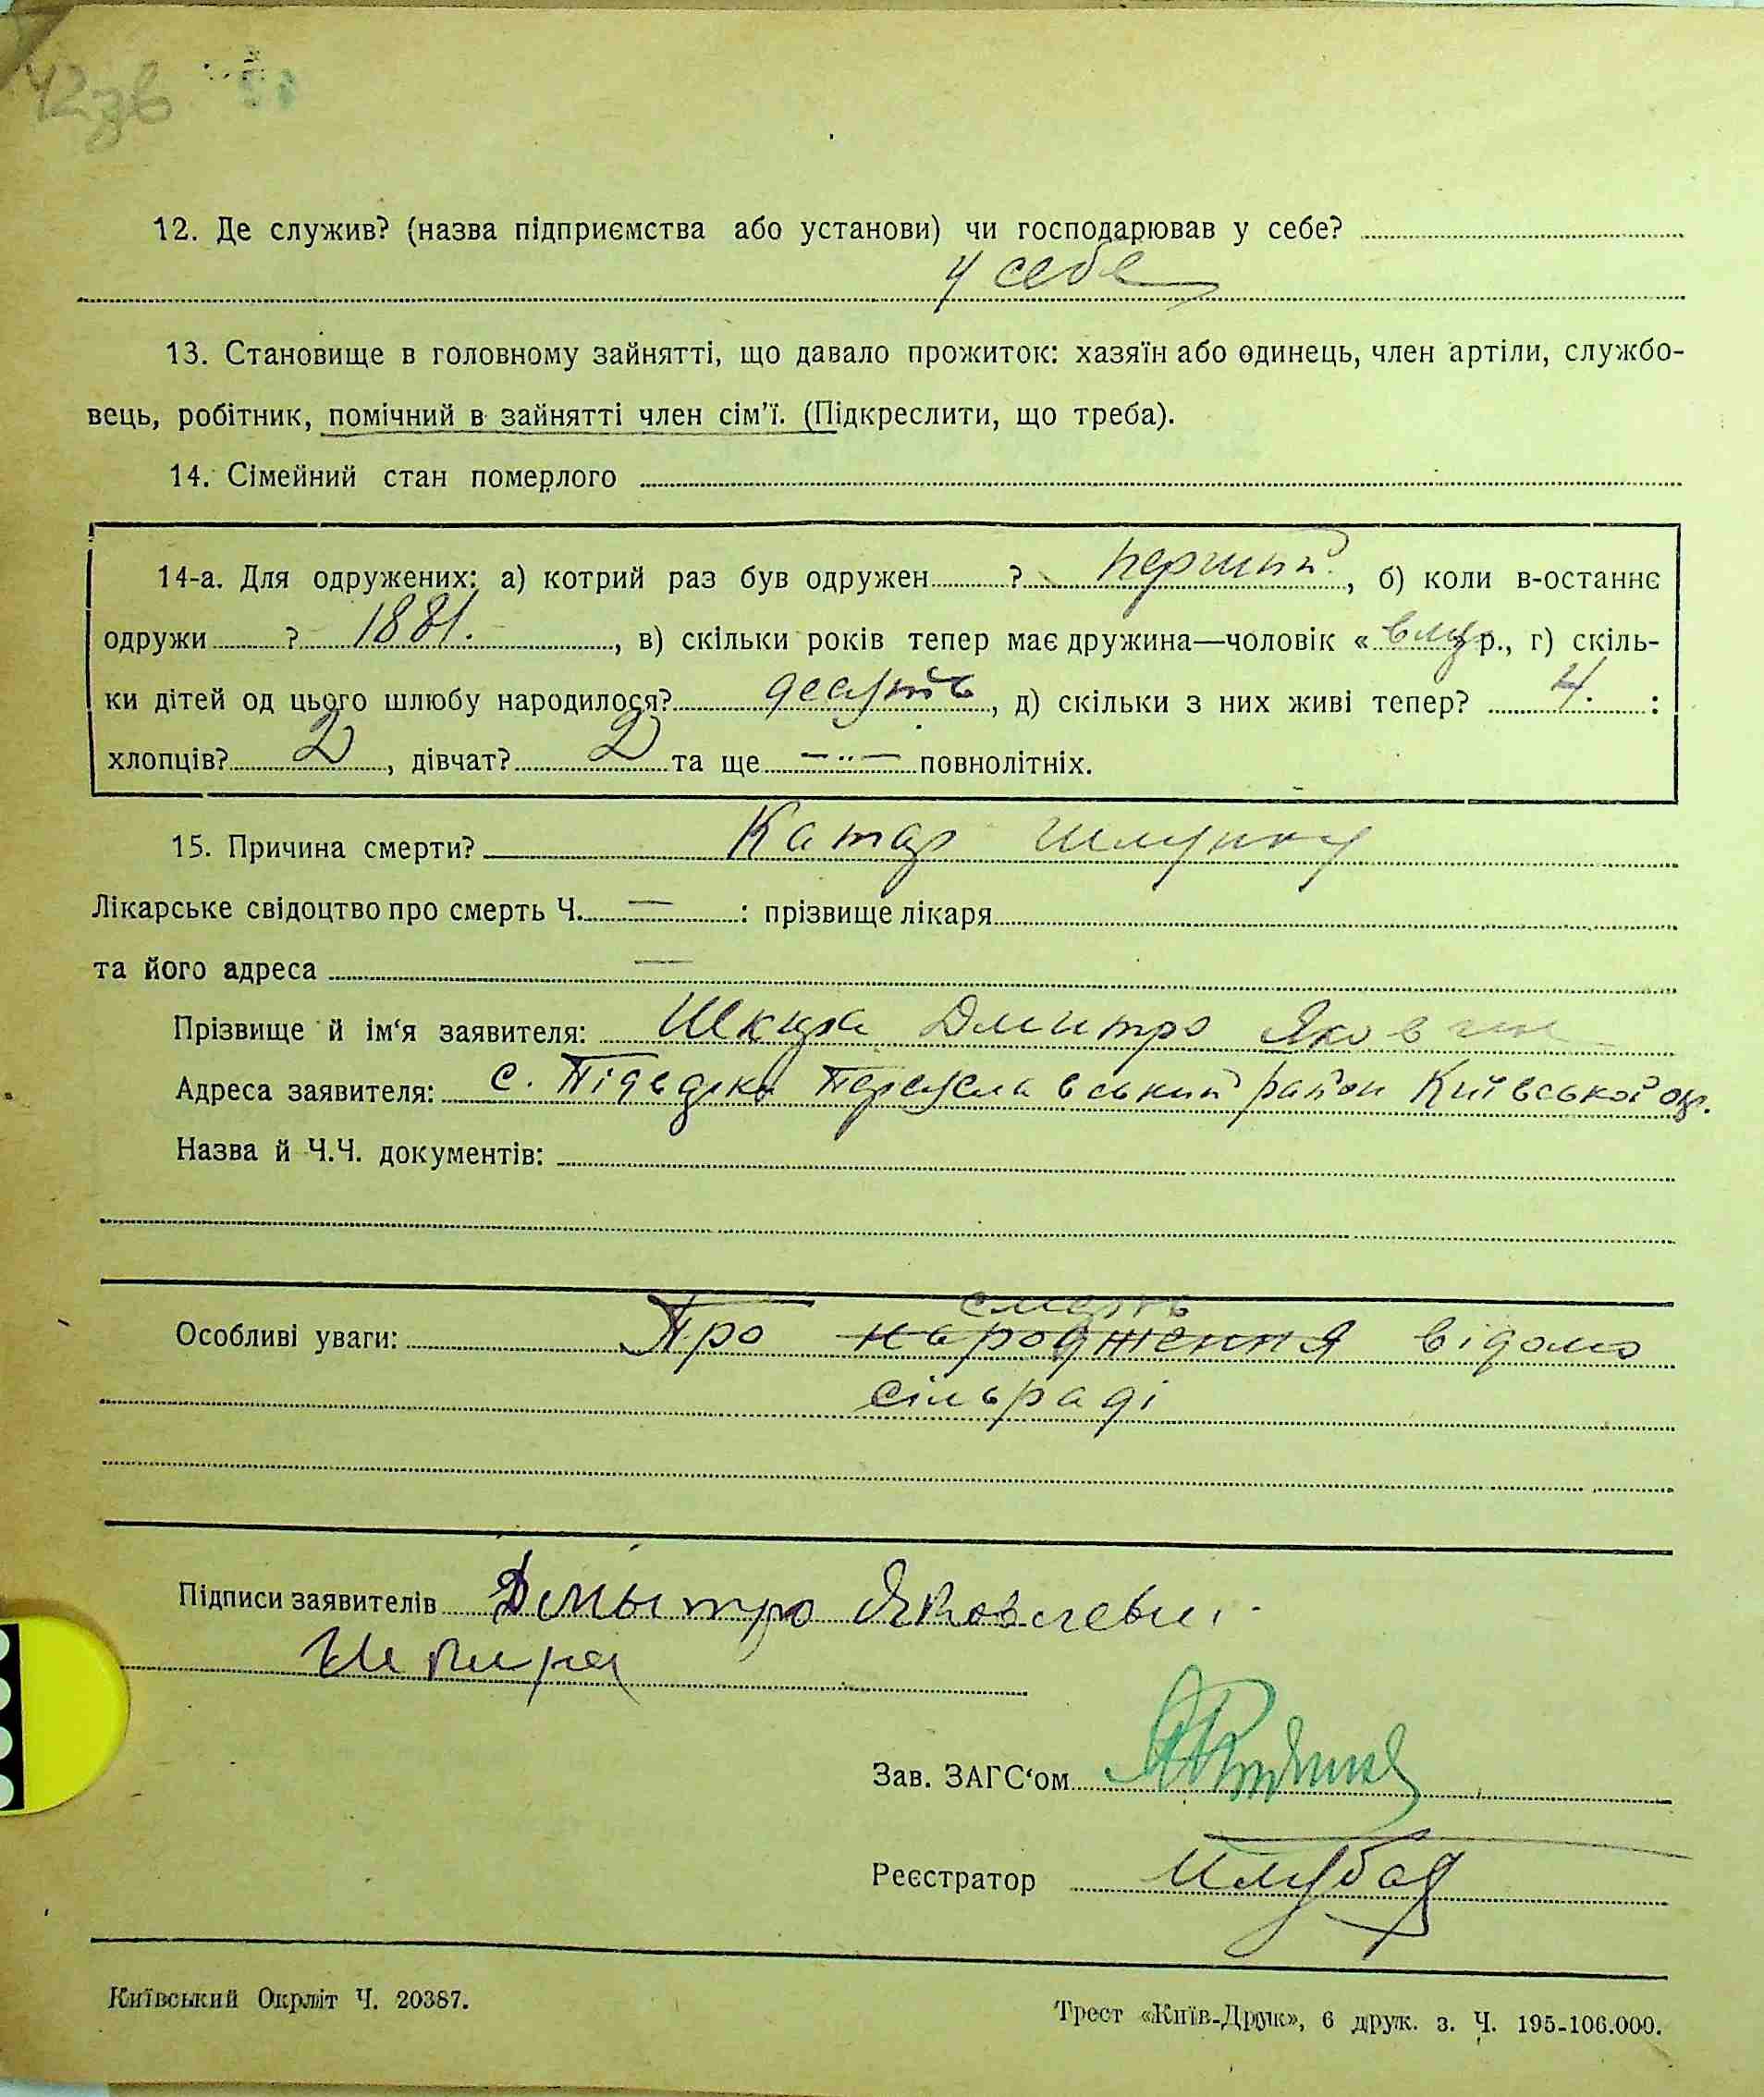 42зв
12. Де служив? (назва підприємства або установи) чи господарював у себе?
у себе
13. Становище в головному зайнятті, що давало прожиток: хазяїн або одинець, член артіли, службо-
вець, робітник, помічний в зайнятті член сім'ї. (Підкреслити, що треба).
14. Сімейний стан померлого
14-а. Для одружених: а) котрий раз був одружен ? перший, б) коли в-останнє
одружи ? 1881. , в) скільки років тепер має дружина—чоловік « р., г) скіль-
ки дітей од цього шлюбу народилося? десять, д) скільки з них живі тепер? 4. :
хлопців? 2, дівчат? 2 та ще — „ — повнолітніх.
15. Причина смерти? Катар шлунку
Лікарське свідоцтво про смерть Ч. — : прізвище лікаря
та його адреса —
Прізвище й ім'я заявителя: Шкира Дмитро Якович
Адреса заявителя: с. Переяславський район Київської ок.
Назва й Ч.Ч. документів:
смерть
Особливі уваги: Про народження відомо
сільраді
Підписи заявителів Дмытро Яковлевич
Шкира
Зав. ЗАГС'ом
Реєстратор
Київський Окрліт Ч. 20387.
Трест «Київ-Друк», 6 друк. з. Ч. 195-106.000.